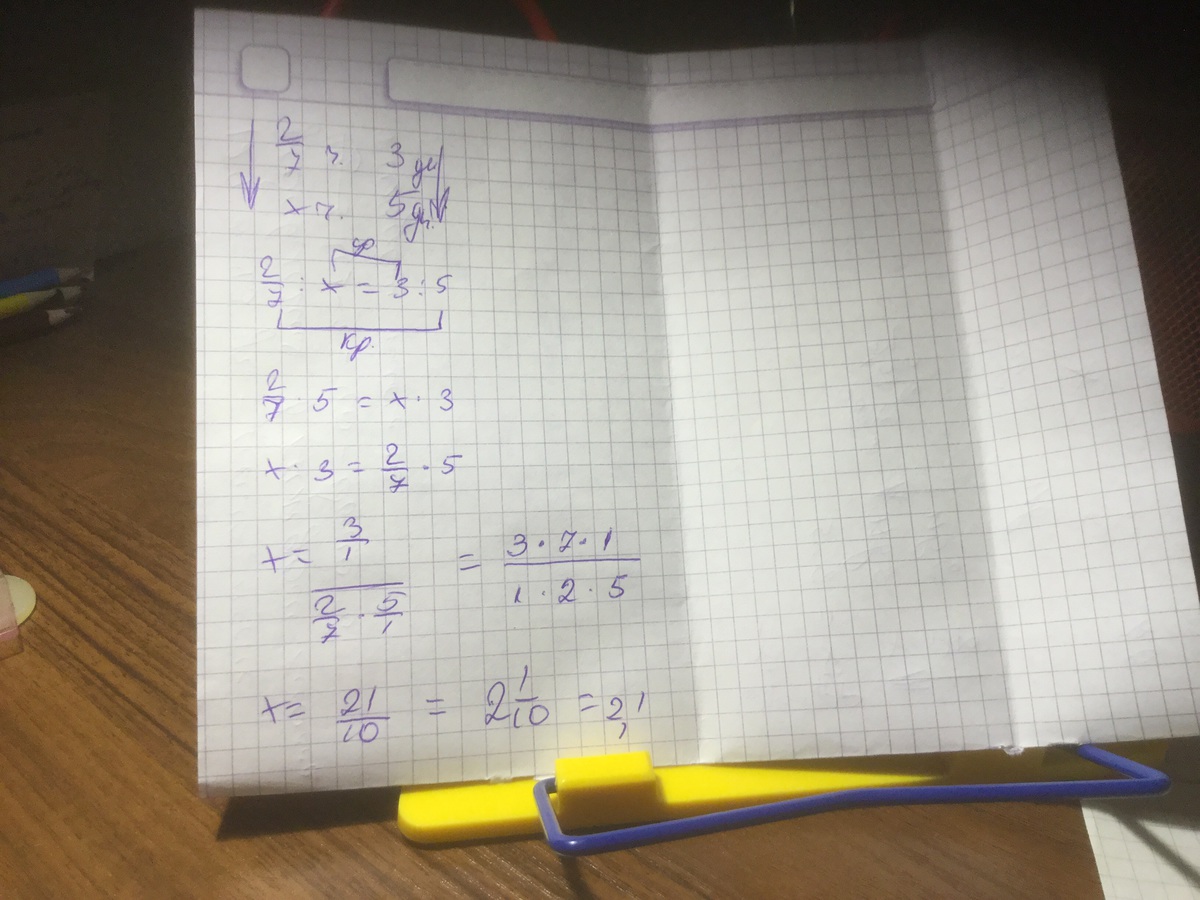 2/7 ч. 3 дм
x ч. 5 дм.
ср.
2/7 : x = 3 : 5
кр.
2/7 · 5 = x · 3
x · 3 = 2/7 · 5
x = 3/1 / (2/7 · 5/1) = 3 · 7 · 1 / 1 · 2 · 5
x = 21/10 = 2 1/10 = 2,1